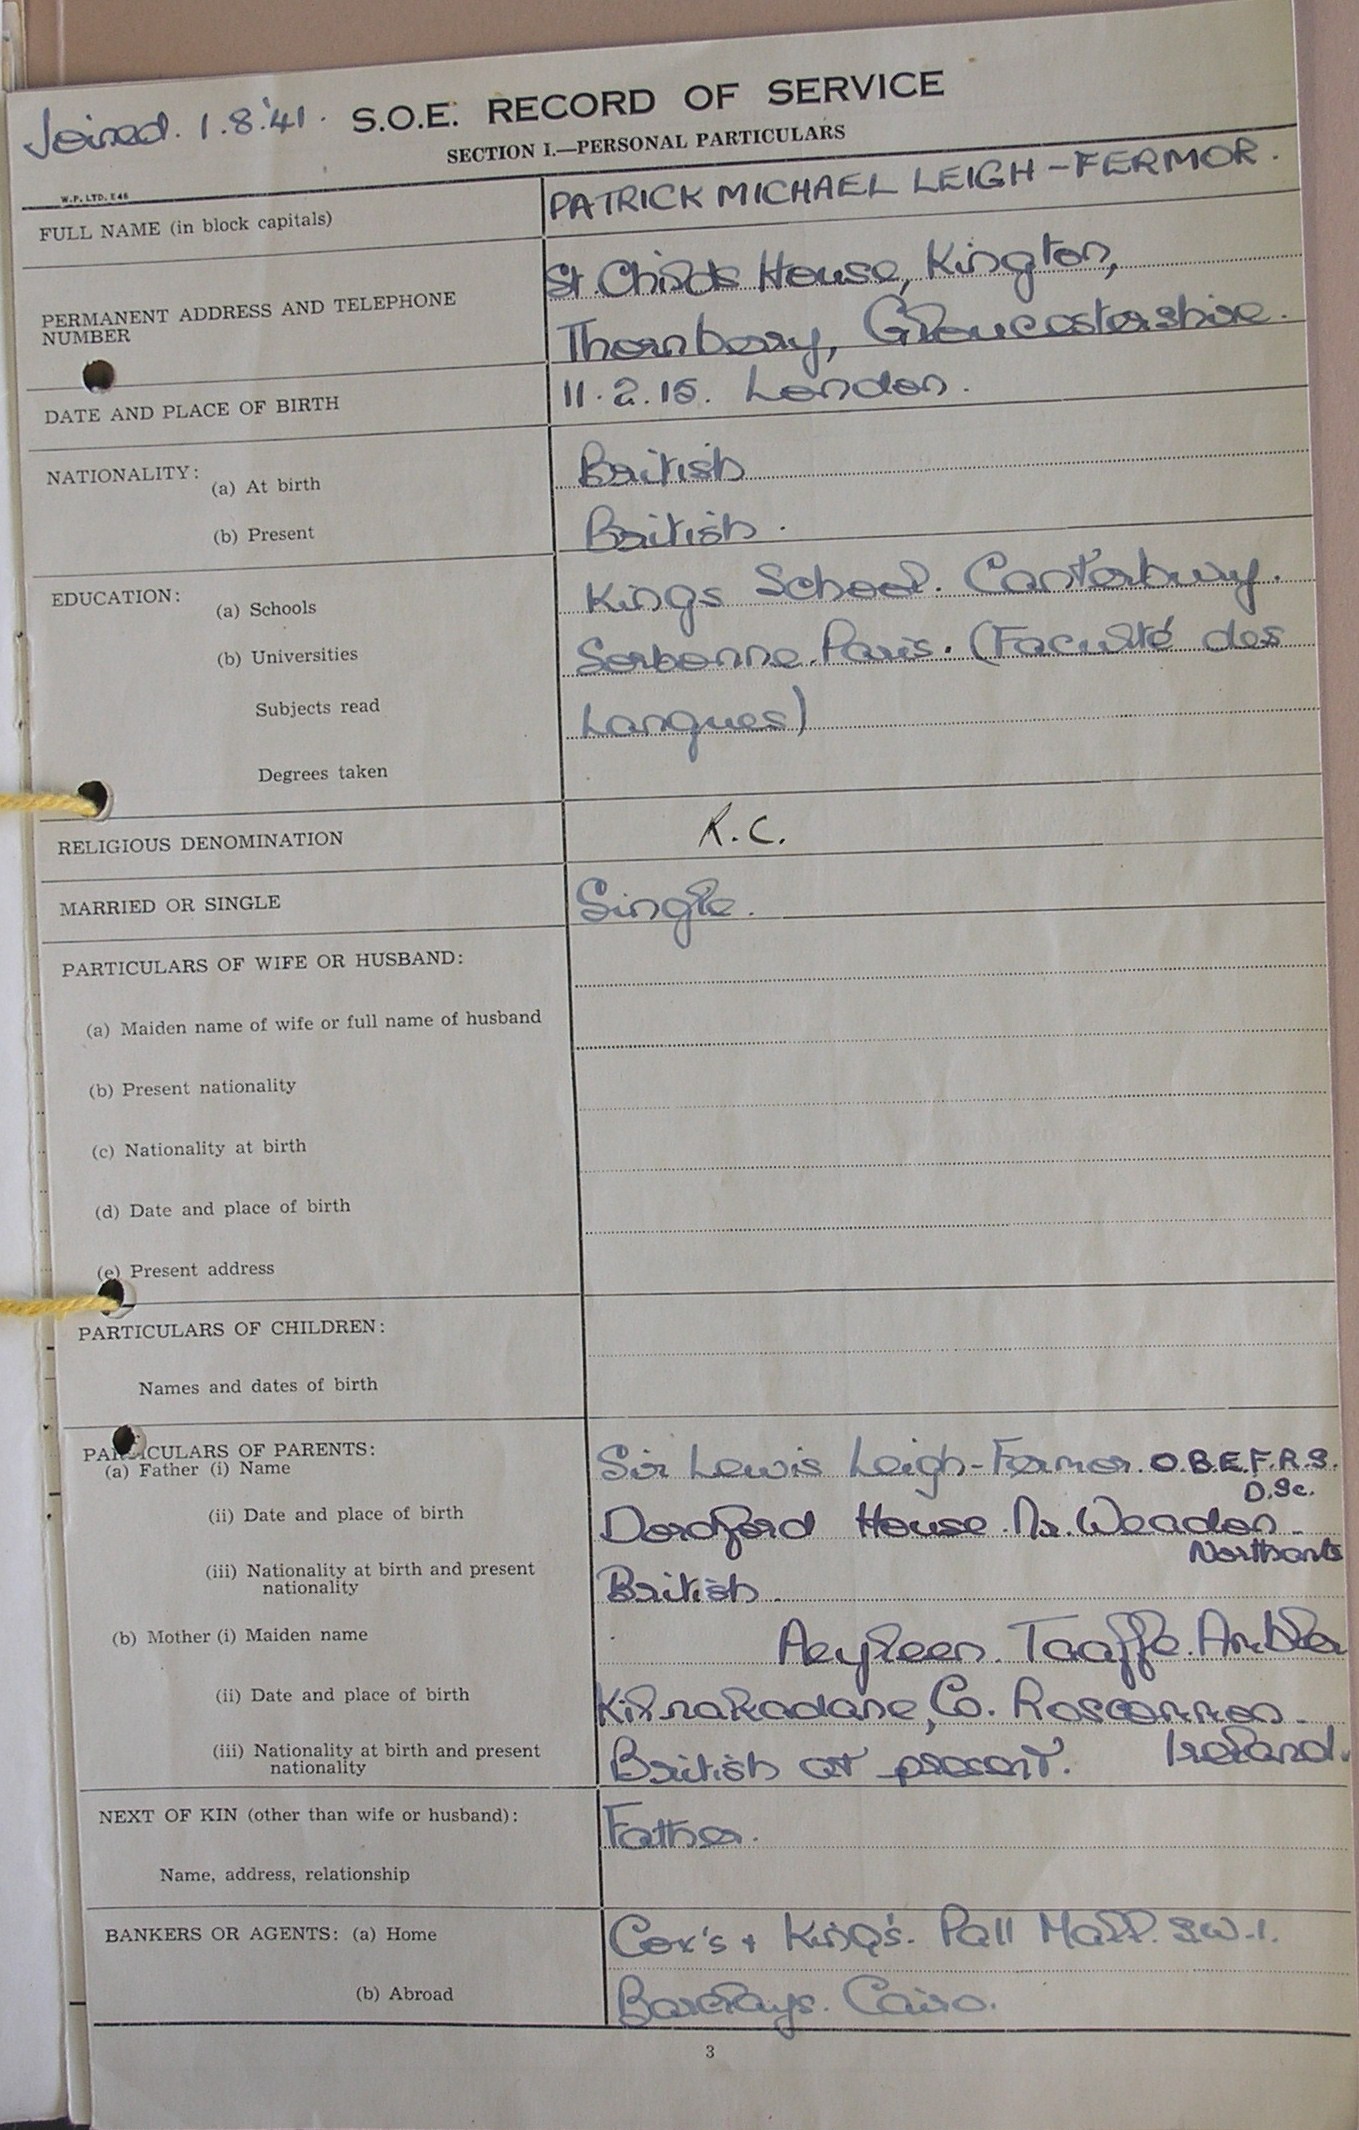 Joined. 1.8.'41. S.O.E. RECORD OF SERVICE
SECTION I.—PERSONAL PARTICULARS
W.P. LTD. E46
FULL NAME (in block capitals) PATRICK MICHAEL LEIGH-FERMOR.
PERMANENT ADDRESS AND TELEPHONE St. Childs House, Kington,
NUMBER Thornbery, Gloucestershire.
DATE AND PLACE OF BIRTH 11.2.15. London.
NATIONALITY:
(a) At birth British
(b) Present British.
EDUCATION:
(a) Schools Kings School. Canterbury.
(b) Universities Sorbonne. Paris. (Faculté des
Subjects read Langues)
Degrees taken
RELIGIOUS DENOMINATION R.C.
MARRIED OR SINGLE Single.
PARTICULARS OF WIFE OR HUSBAND:
(a) Maiden name of wife or full name of husband
(b) Present nationality
(c) Nationality at birth
(d) Date and place of birth
(e) Present address
PARTICULARS OF CHILDREN:
Names and dates of birth
PARTICULARS OF PARENTS:
(a) Father (i) Name Sir Lewis Leigh-Fermor. O.B.E. F.R.S.
D.Sc.
(ii) Date and place of birth Dordford House. Nr. Weadon.
Northants
(iii) Nationality at birth and present British.
nationality
(b) Mother (i) Maiden name Aeyleen. Taaffe. Ambler
(ii) Date and place of birth Kilnakadane, Co. Roscommon.
(iii) Nationality at birth and present British at present. Ireland.
nationality
NEXT OF KIN (other than wife or husband): Father.
Name, address, relationship
BANKERS OR AGENTS: (a) Home Cox's + King's. Pall Mall. S.W.1.
(b) Abroad Barclays. Cairo.
3